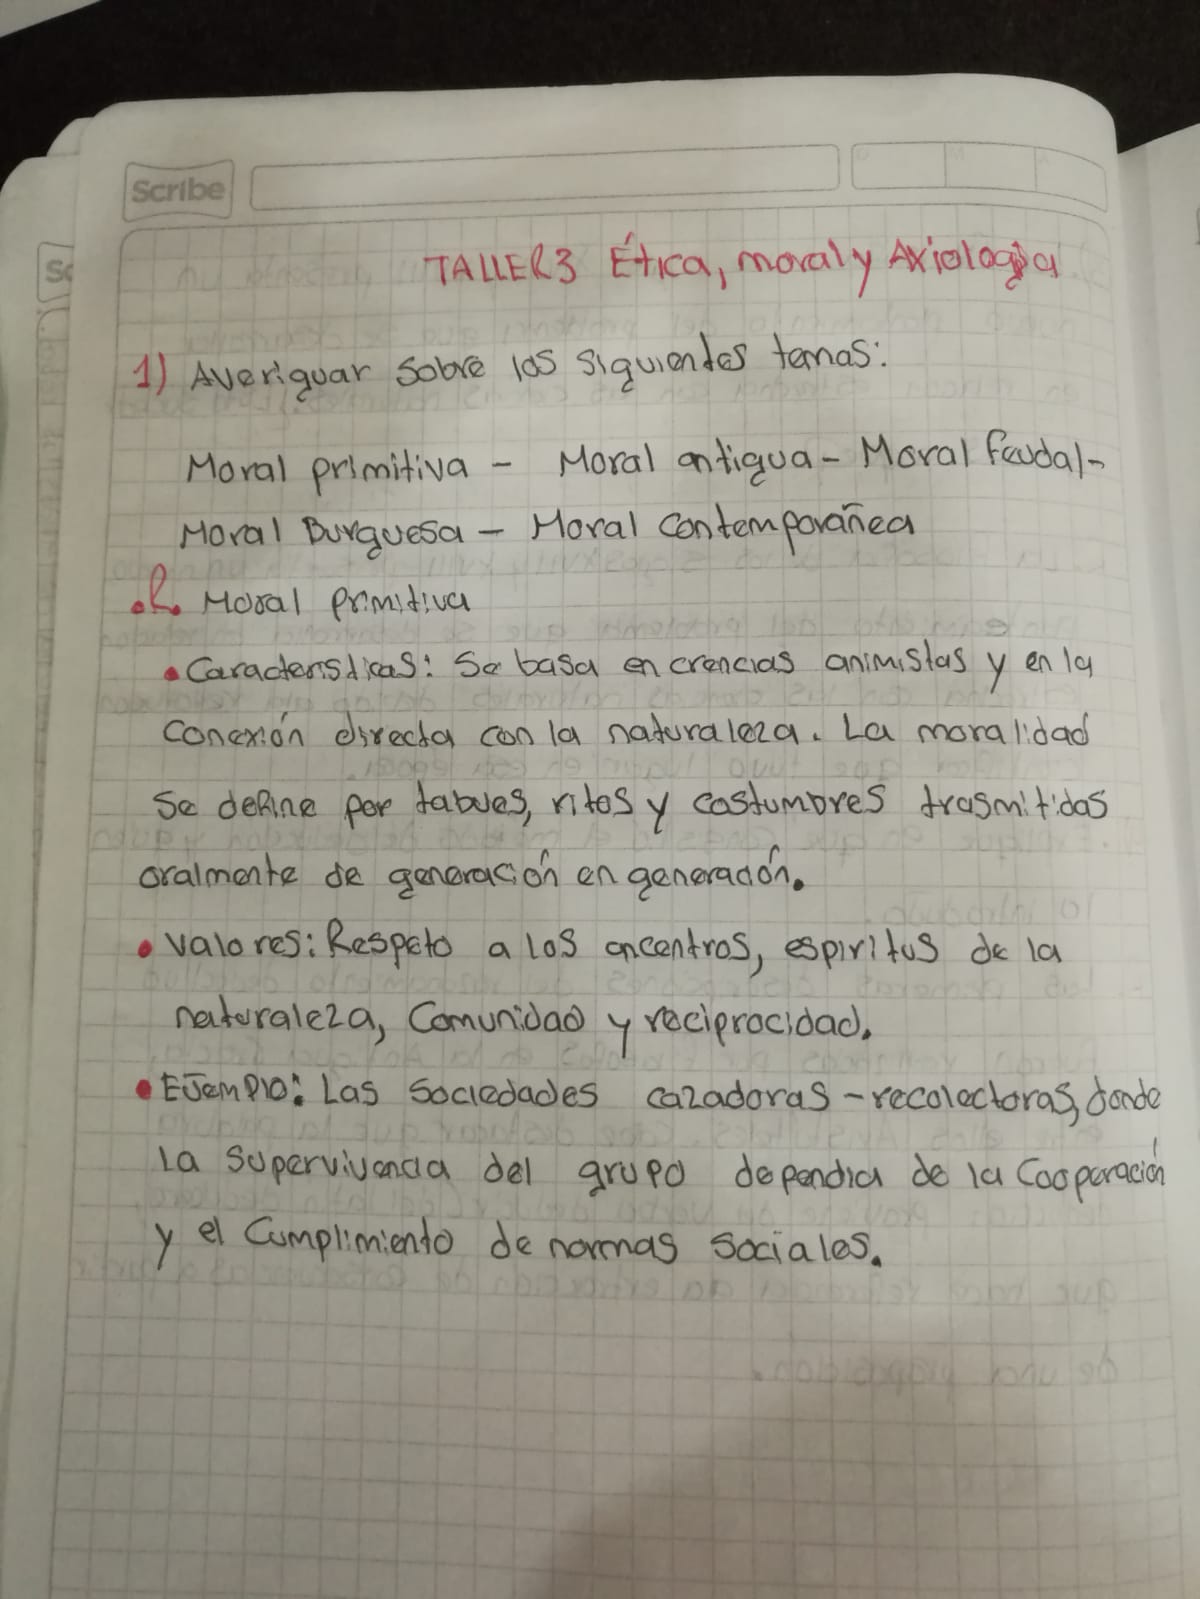 Scribe
TALLER3 Ética, moral y Axiologia
1) Averiguar sobre los siguientes temas:
Moral primitiva - Moral antigua - Moral feudal -
Moral Burguesa - Moral contemporañea
R. Moral primitiva
• Caracteristicas: Se basa en crencias animistas y en la
conexión directa con la naturaleza. La moralidad
se define por tabues, ritos y costumbres trasmitidas
oralmente de generación en generación.
• Valores: Respeto a los ancentros, espiritus de la
naturaleza, Comunidad y reciprocidad.
• EJemplo: Las Sociedades cazadoras - recolectoras, donde
la supervivencia del grupo dependia de la Cooperación
y el Cumplimiento de normas sociales.